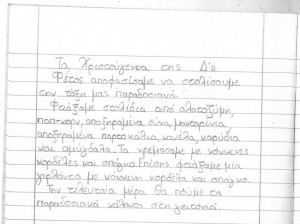 Τα Χριστούγεννα της Δ'β
Φέτος αποφασίσαμε να στολίσουμε
την τάξη μας παραδοσιακά.
Φτιάξαμε στολίδια από αλατοζύμη,
ποπ-κορν, αποξηραμένα σύκα, μανταρίνια
αποξηραμένα πορτοκάλια, κανέλα, καρύδια
και αμύγδαλα. Τα κρεμάσαμε με κόκκινες
κορδέλες και σπάγκο. Επίσης φτιάξαμε μία
γιρλάντα με κόκκινη κορδέλα και σπάγκο.
Την τελευταία μέρα θα πούμε τα
παραδοσιακά κάλαντα στη γειτονιά.